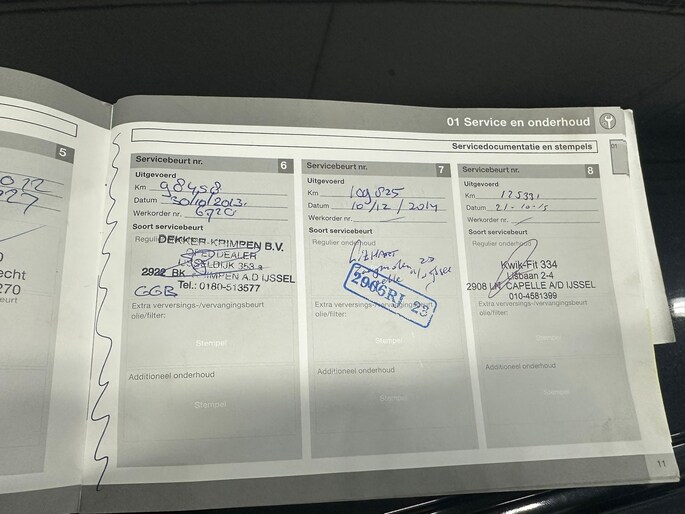 01 Service en onderhoud
Servicedocumentatie en stempels
01
5
Servicebeurt nr. 6
Uitgevoerd
Km 98458
Datum 30/10/2013.
Werkorder nr. 6720
Soort servicebeurt
Regulier
DEKKER-KRIMPEN B.V.
DEALER
2922 BK
IMPEN A.D IJSSEL
Tel.: 0180-513577
GGB
Extra verversings-/vervangingsbeurt
olie/filter:
Stempel
Additioneel onderhoud
Stempel
Servicebeurt nr. 7
Uitgevoerd
Km 109825
Datum 10/12/2014
Werkorder nr.
Soort servicebeurt
Regulier onderhoud
23
2906RJ 23
Extra verversings-/vervangingsbeurt
olie/filter:
Stempel
Additioneel onderhoud
Stempel
Servicebeurt nr. 8
Uitgevoerd
Km 125331
Datum 21-10-15
Werkorder nr.
Soort servicebeurt
Regulier onderhoud
Kwik-Fit 334
Lisbaan 2-4
2908 LN CAPELLE A/D IJSSEL
010-4581399
Extra verversings-/vervangingsbeurt
olie/filter:
Stempel
Additioneel onderhoud
Stempel
11